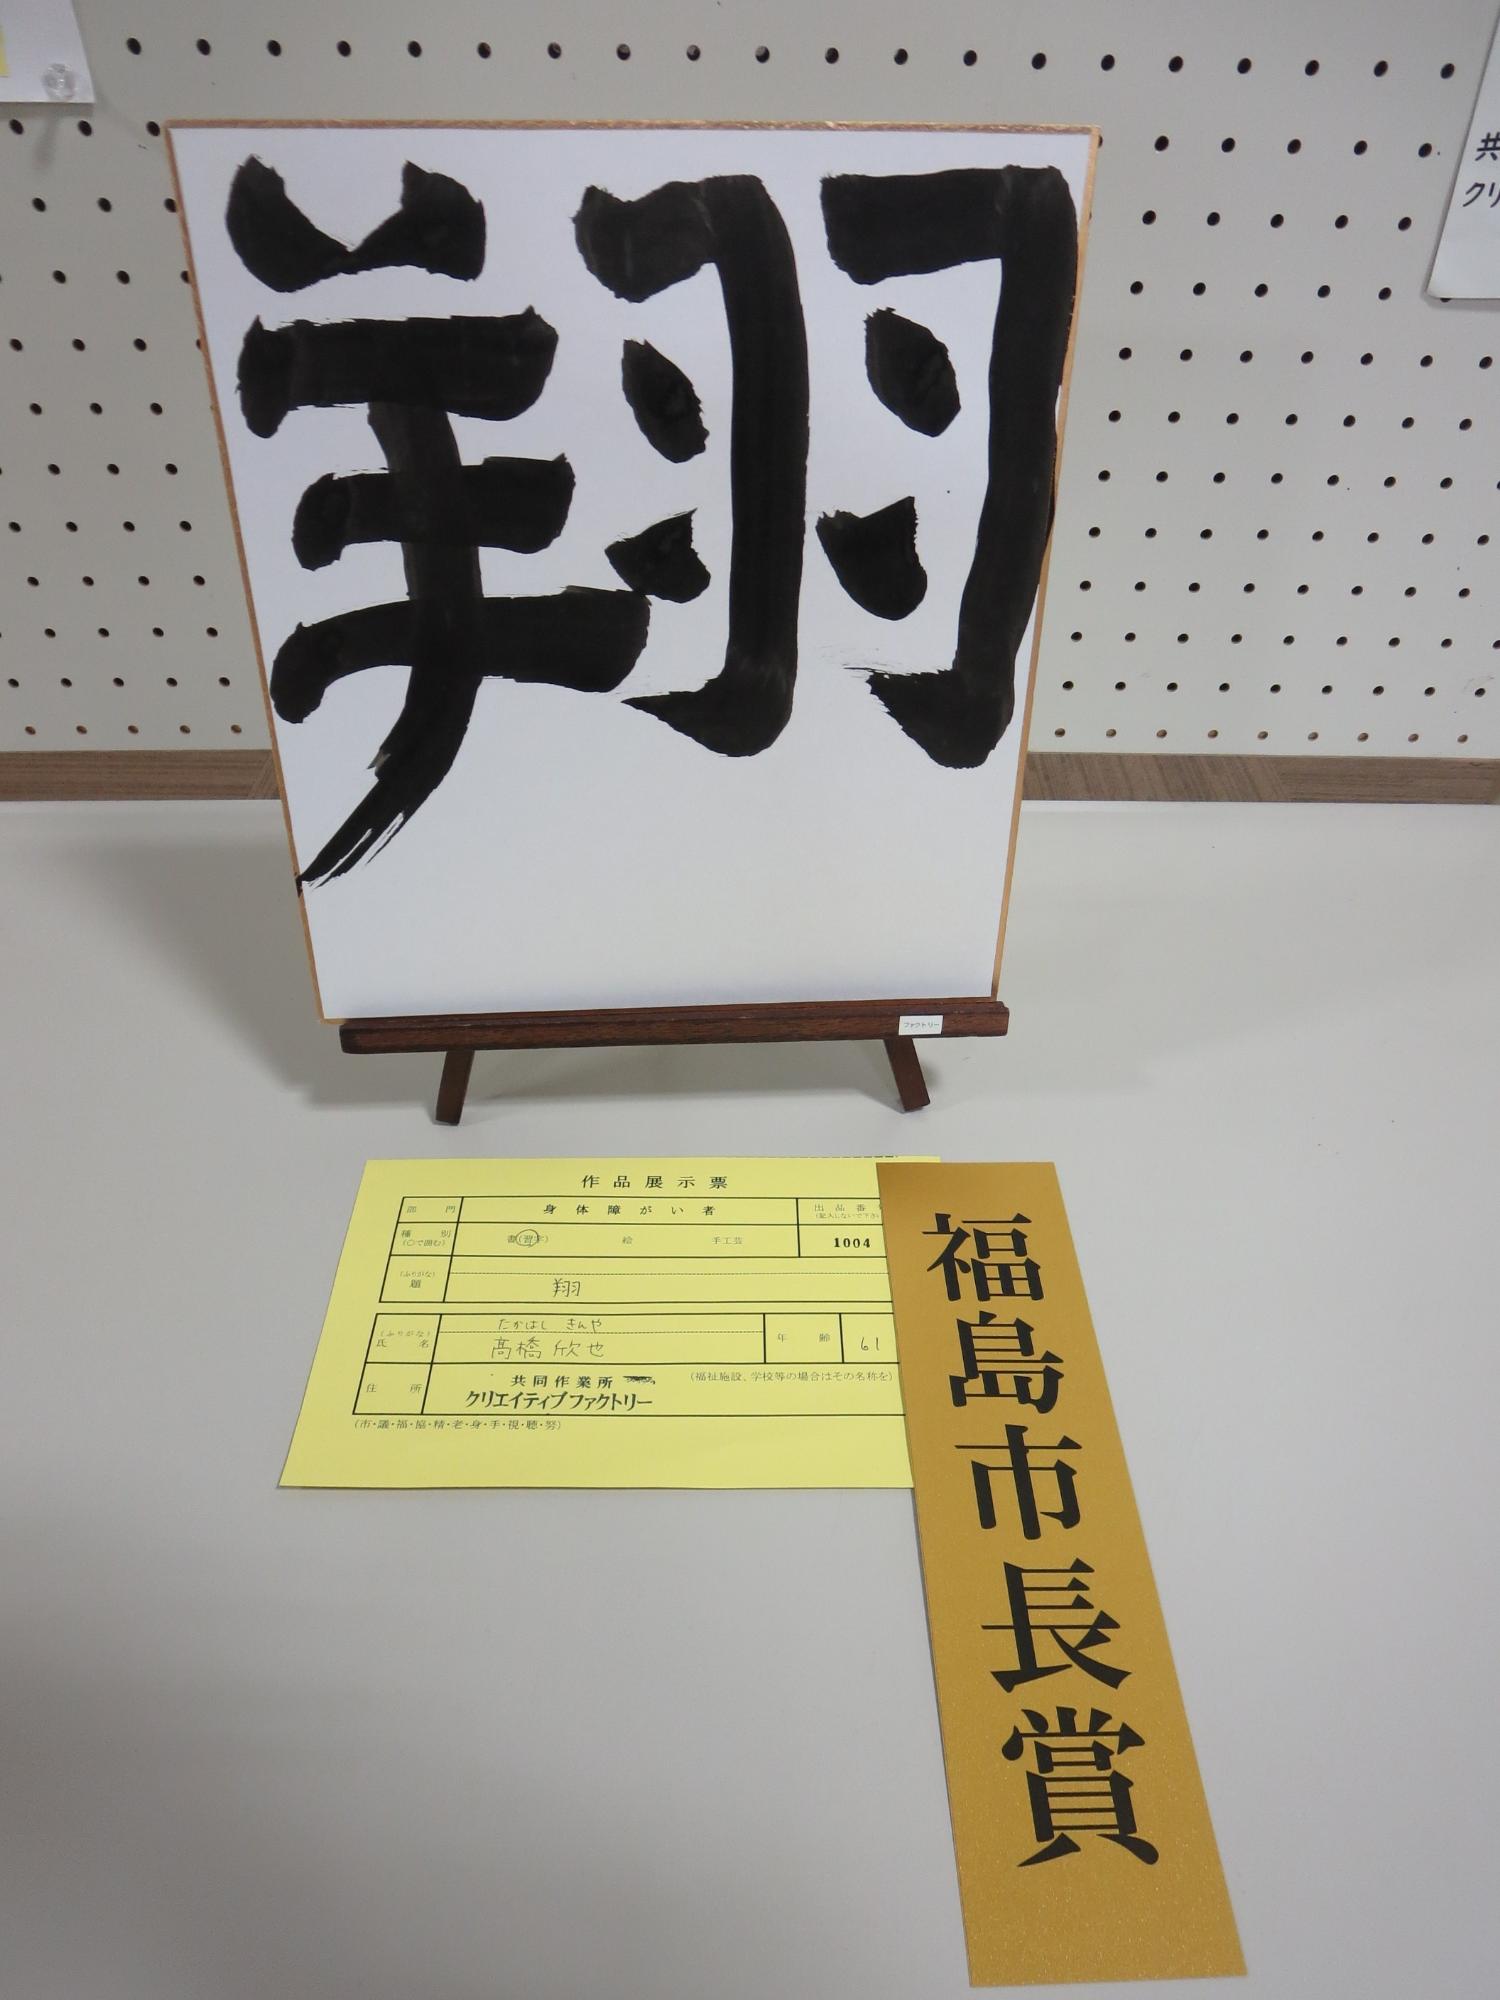 共
クリ
翔
ファクトリー
作品展示票
部門 身体障がい者 出品番号
(記入しないで下さい
種別 書(習字) 絵 手工芸 1004
(○で囲む)
(ふりがな)
題 翔
(ふりがな) たかはし きんや
氏名 髙橋 欣也 年齢 61
住所 共同作業所 (福祉施設、学校等の場合はその名称を)
クリエイティブファクトリー
(市・議・福・協・精・老・身・手・視・聴・努)
福島市長賞